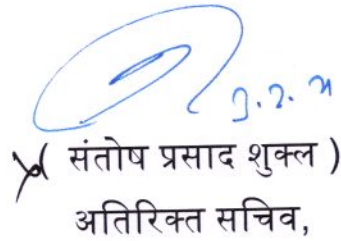 ( संतोष प्रसाद शुक्ल )
अतिरिक्त सचिव,